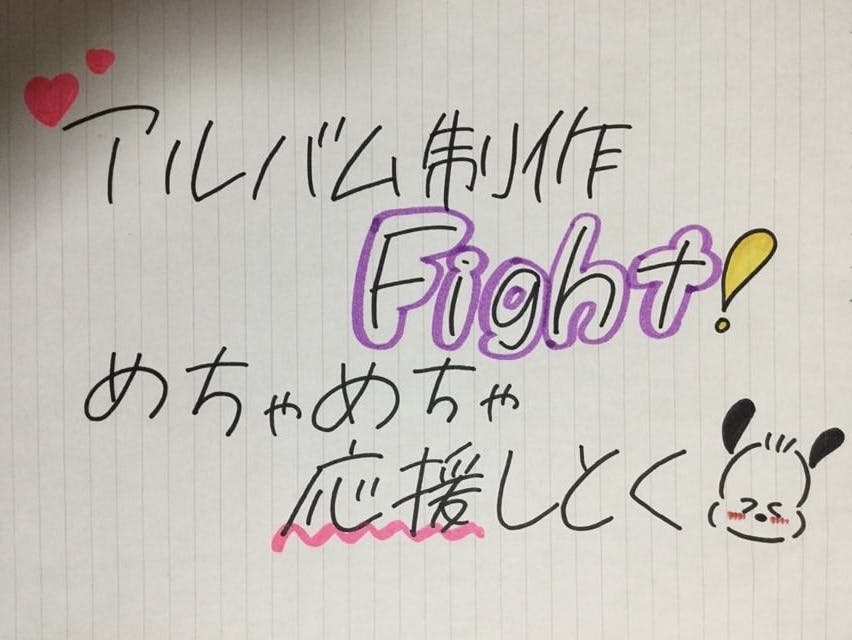 アルバム制作
Fight!
めちゃめちゃ
応援しとく